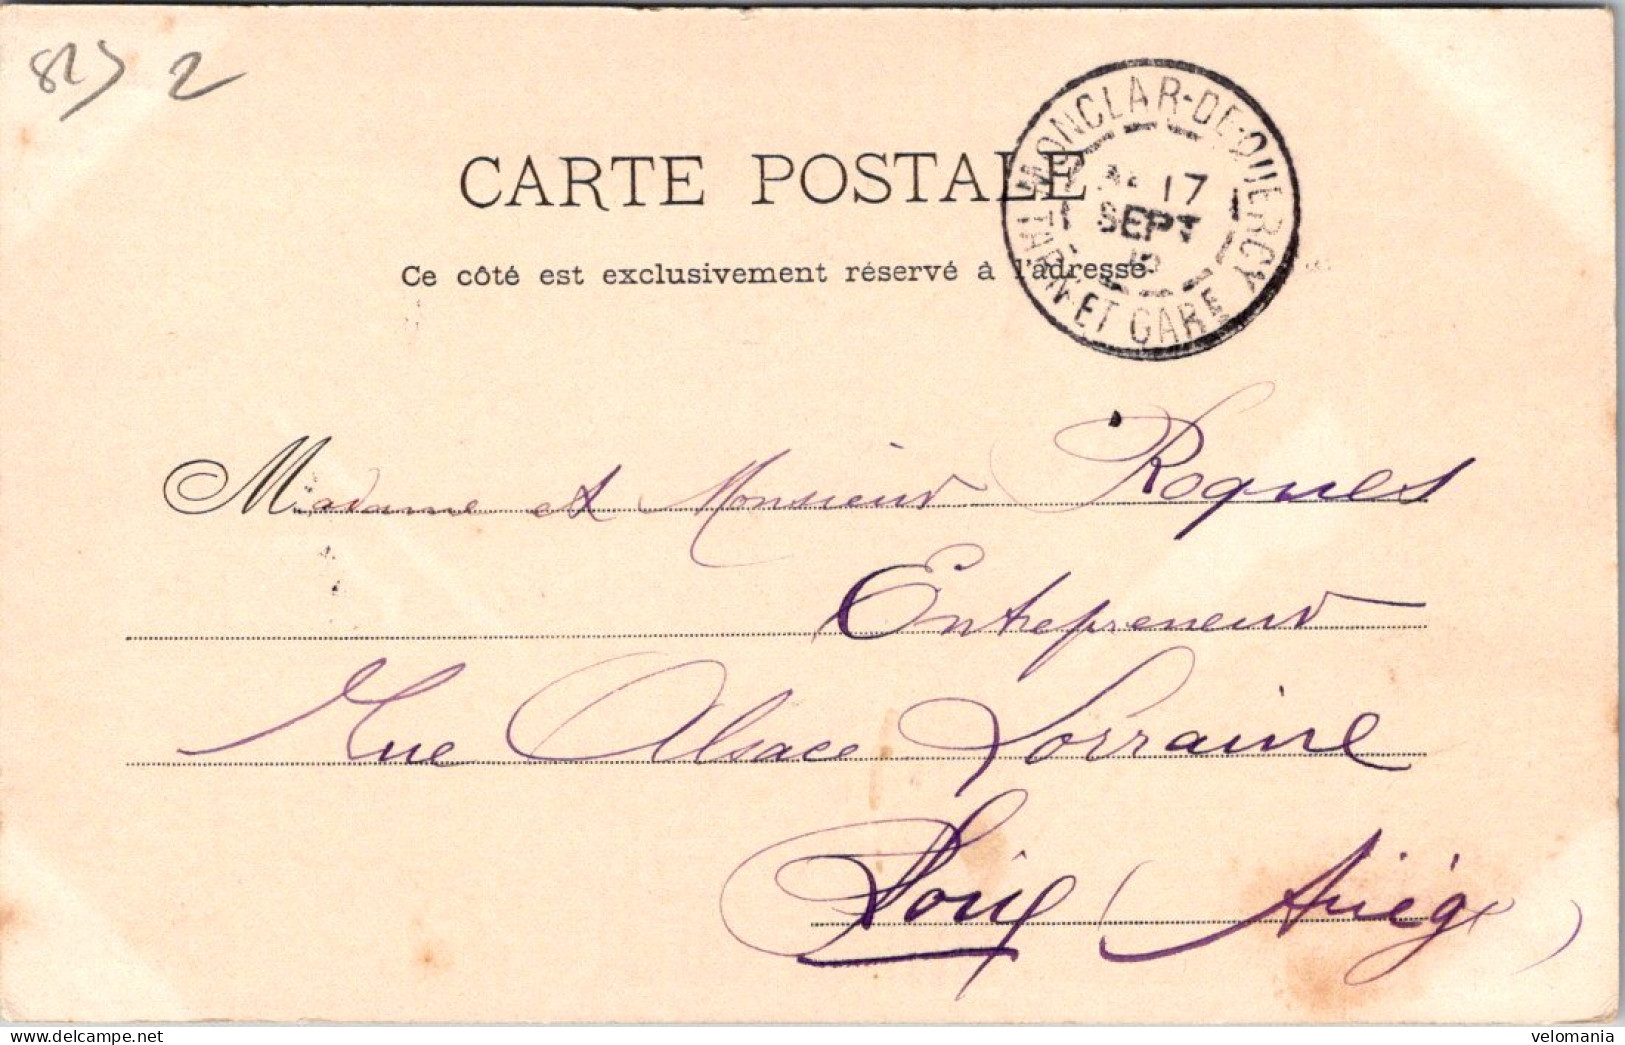 82) 2
CARTE POSTALE
Ce côté est exclusivement réservé à l'adresse
MONCLAR-DE-QUERCY
17
SEPT
TARN ET GARE
Madame et Monsieur Roques
Entrepreneur
Rue Alsace Lorraine
Foix (Ariège)
velomania